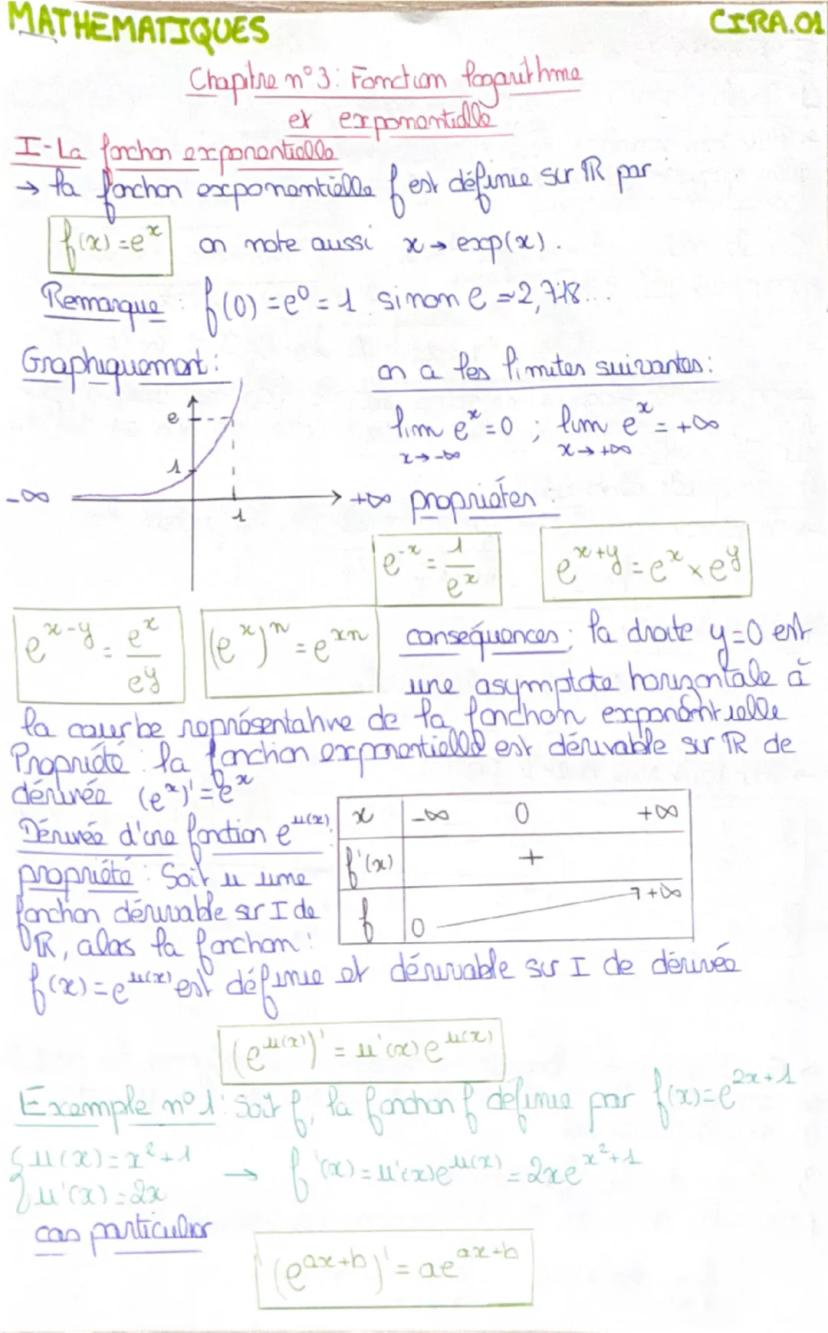 MATHEMATIQUES
CIRA.01
Chapitre n°3: Fonction logarithme
et exponentielle
I-La fonction exponentielle
→ la fonction exponentielle f est définie sur ℝ par :
f(x) = e^x on note aussi x → exp(x).
Remarque : f(0) = e^0 = 1 sinon e ≃ 2,718...
Graphiquement :
on a les limites suivantes :
e
1
-∞
1
+∞
lim e^x = 0 , lim e^x = +∞
x → -∞ x → +∞
propriétés :
e^-x = 1/e^x
e^x+y = e^x × e^y
e^x-y = e^x/e^y
(e^x)^n = e^xn
conséquences : la droite y=0 est
une asymptote horizontale à
la courbe représentative de la fonction exponentielle
Propriété : la fonction exponentielle est dérivable sur ℝ de
dérivée (e^x)' = e^x
Dérivée d'une fonction e^u(x) :
propriété : Soit u une
fonction dérivable sr I de
ℝ, alors la fonction :
x -∞ 0 +∞
f'(x) +
f 0 +∞
f(x) = e^u(x) est définie et dérivable sur I de dérivée
(e^u(x))' = u'(x) e^u(x)
Exemple n°1 : Soit f, la fonction f définie par f(x) = e^2x+1
{ u(x) = x²+1
u'(x) = 2x
→ f'(x) = u'(x)e^u(x) = 2xe^x²+1
cas particulier
(e^ax+b)' = ae^ax+b